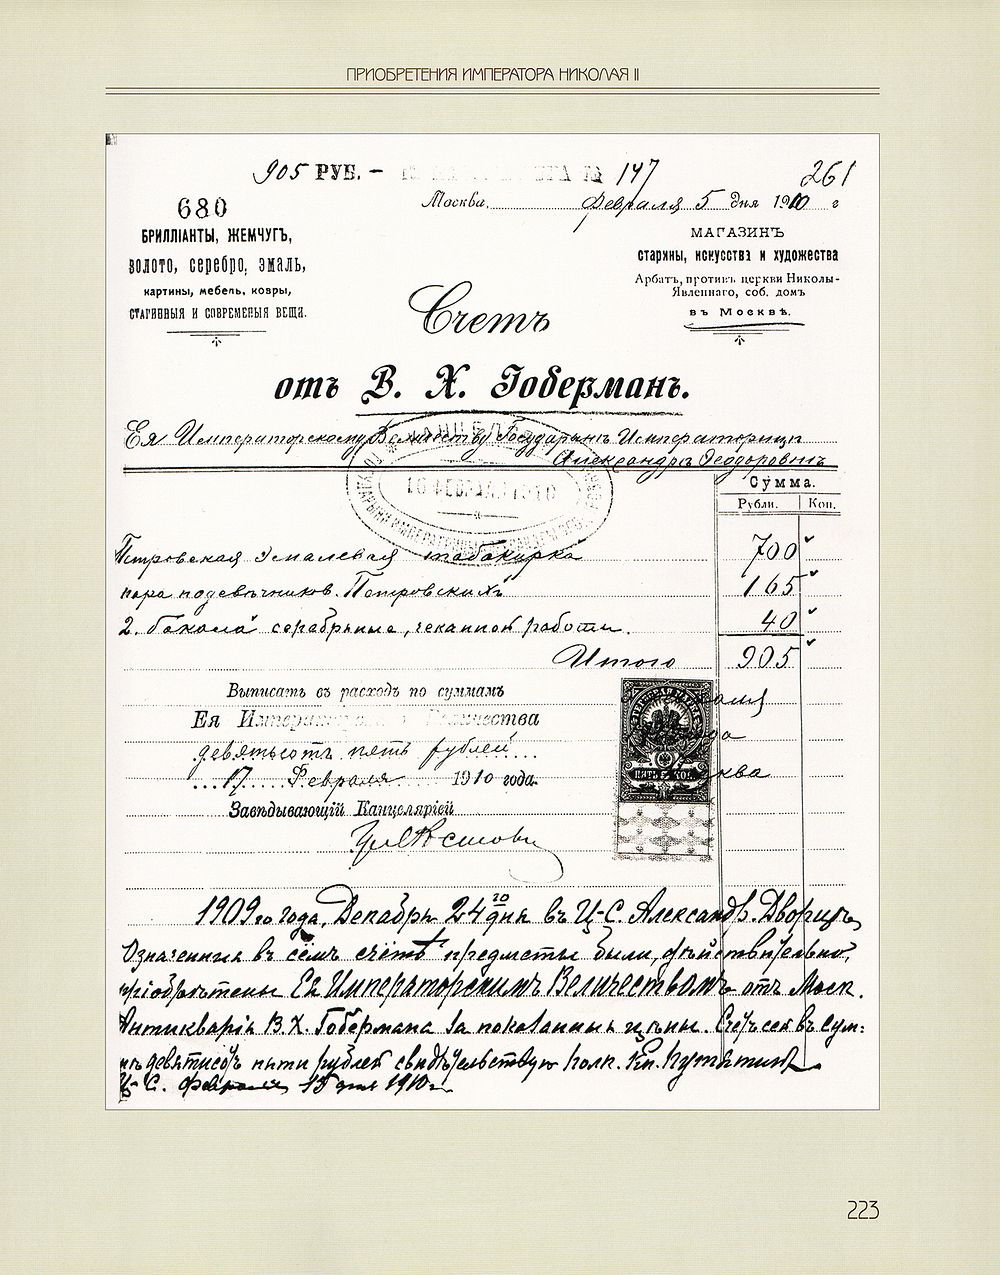 ПРИОБРЕТЕНИЯ ИМПЕРАТОРА НИКОЛАЯ II
905 РУБ. – 147
261
Москва, Февраля 5 дня 1910 г
680
БРИЛЛІАНТЫ, ЖЕМЧУГЪ,
ЗОЛОТО, СЕРЕБРО, ЭМАЛЬ,
КАРТИНЫ, МЕБЕЛЬ, КОВРЫ,
СТАРИННЫЯ И СОВРЕМЕНЫЯ ВЕЩИ.
МАГАЗИНЪ
старины, искусства и художества
Арбатъ, противъ церкви Николы-
Явленнаго, соб. домъ
въ Москвѣ.
Счетъ
отъ В. Х. Гоберманъ.
Ея Императорскому Величеству Государынѣ Императрицѣ
Александрѣ Ѳеодоровнѣ
КАНЦЕЛЯРІЯ
16 ФЕВРАЛ 1910
Сумма.
Рубли. Коп.
Петровская эмалевая табакирка 700
пара подсвѣчников. Петровскихъ 165
2. бокала серебрыные, чеканной работы. 40
Итого 905
Выписать въ расходъ по суммамъ
Ея Императорскаго Величества
девятьсотъ пять рублей
17 Февраля 1910 года.
Завѣдывающій Канцеляріей
ПЯТЬ КОП.
1909го года, Декабря 24го дня въ Ц-С. Александ. Дворцѣ,
Означенные въ семъ счетѣ предметы были, дѣйствительно,
пріобрѣтены Ея Императорскимъ Величествомъ отъ Моск.
Антикварія В. Х. Гобермана за показанныя цѣны. Счетъ сей въ сум-
мѣ девятисотъ пяти рублей свидѣтельствую Полк. Кн. Путятинъ
Ц-С. Февраля 15 дня 1910 г.
223